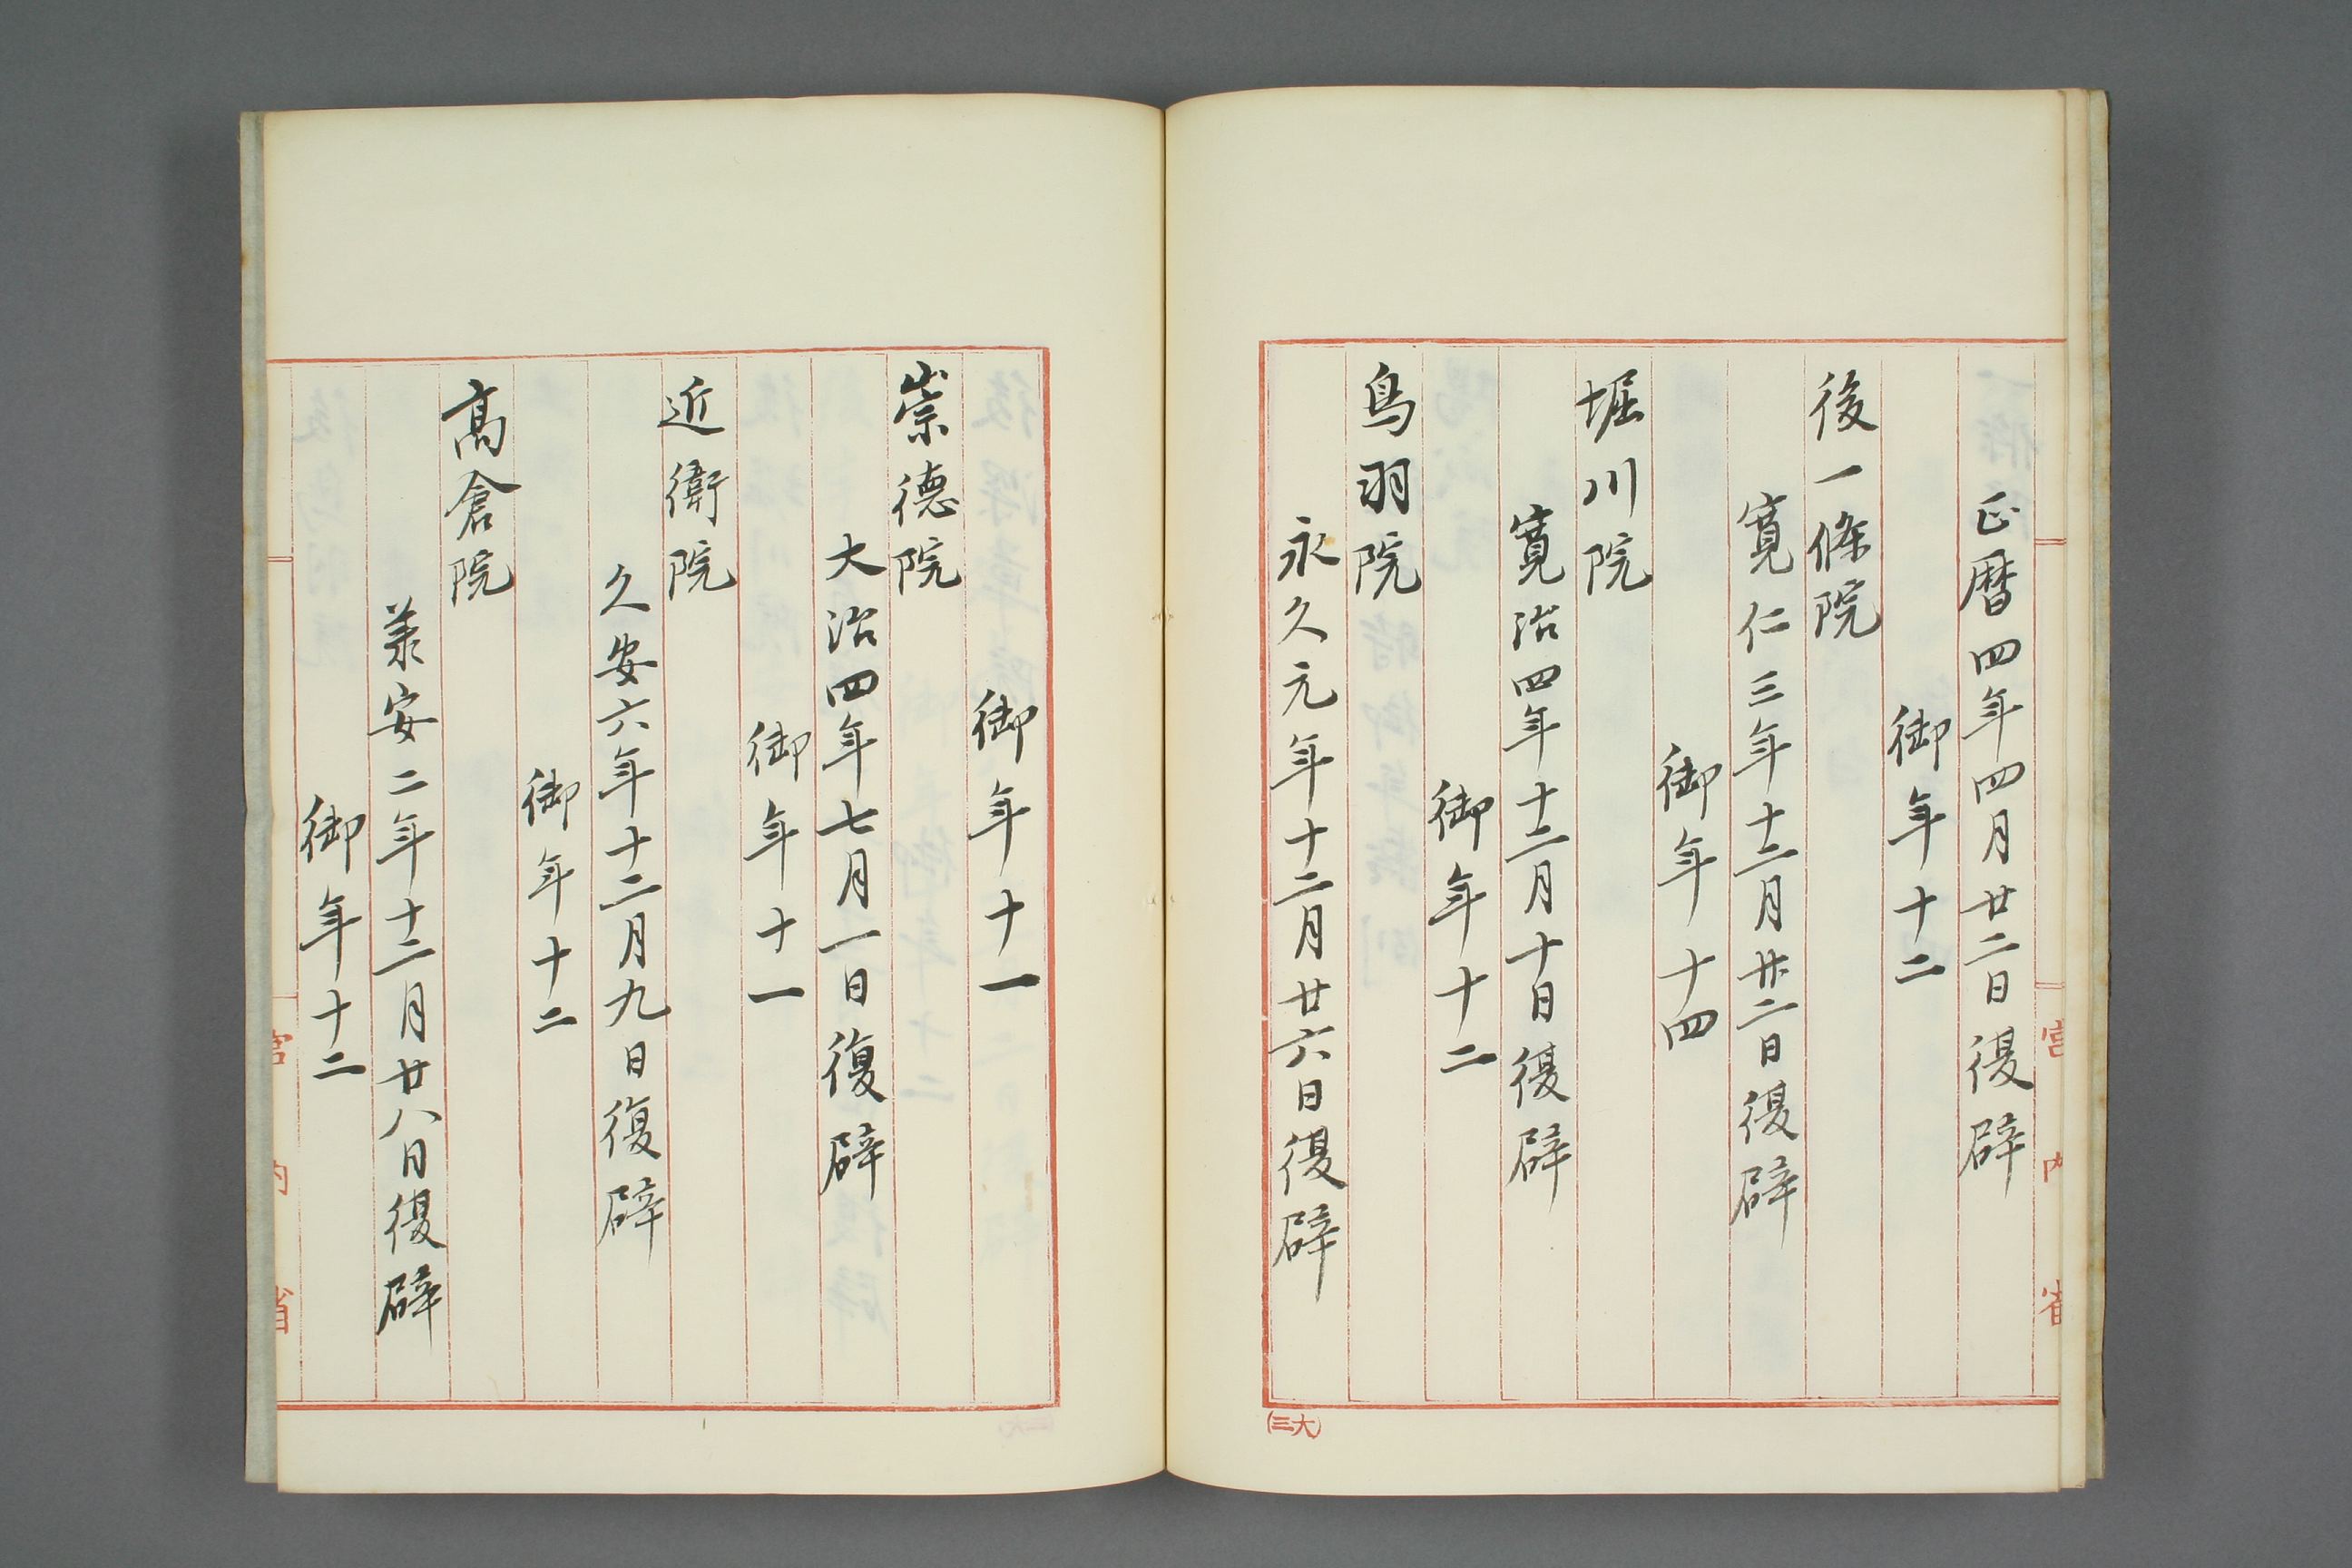 正暦四年四月廿二日復辟
御年十二
後一條院
寛仁三年十二月廿二日復辟
御年十四
堀川院
寛治四年十二月十日復辟
御年十二
鳥羽院
永久元年十二月廿六日復辟
御年十一
崇德院
大治四年七月一日復辟
御年十一
近衛院
久安六年十二月九日復辟
御年十二
髙倉院
羕安二年十二月廿八日復辟
御年十二
宮内省
宮内省
(大三)